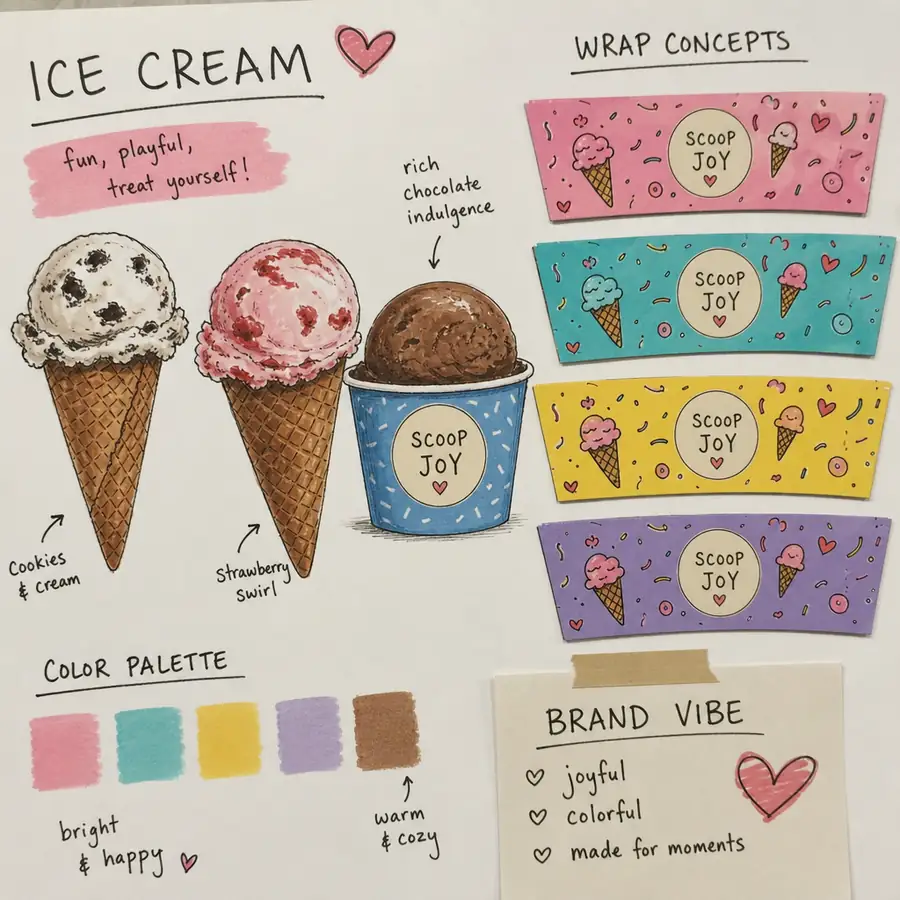 ICE CREAM
fun, playful,
treat yourself!
rich
chocolate
indulgence
SCOOP
JOY
Cookies
& cream
Strawberry
swirl
WRAP CONCEPTS
SCOOP
JOY
SCOOP
JOY
SCOOP
JOY
SCOOP
JOY
COLOR PALETTE
bright
& happy
warm
& cozy
BRAND VIBE
joyful
colorful
made for moments